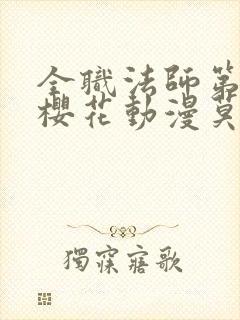 全職法師第
櫻花動漫莫
獨寐寤歌